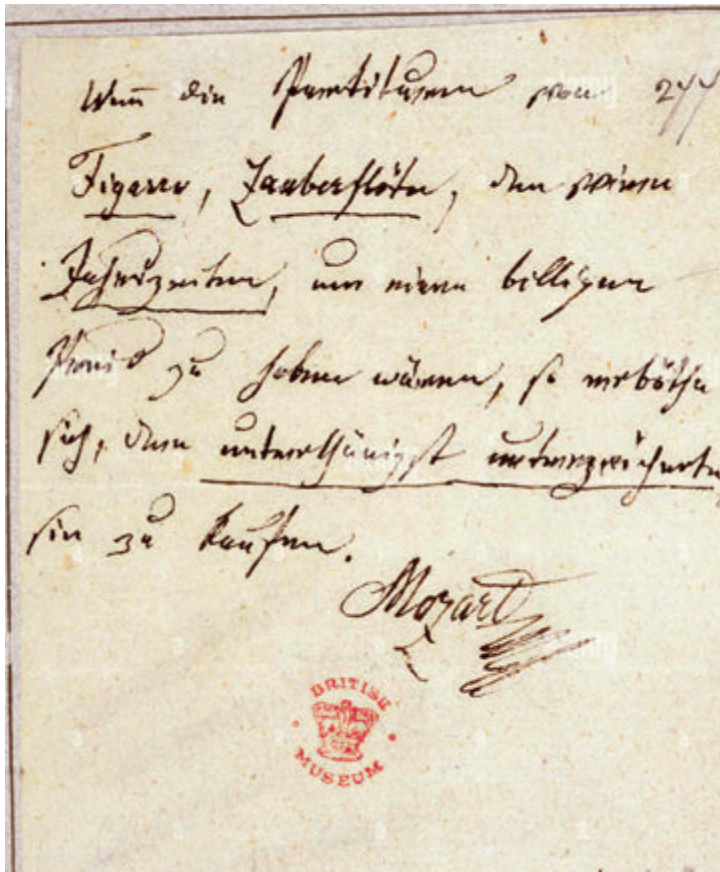 Wenn die Partituren von 244
Figaro, Zauberflöte, den vier
Jahrszeiten, um einen billigen
Preis zu haben wären, so erböthe
sich, dem unterthänigst unterzeichneten
sie zu kaufen.
Mozart
BRITISH
MUSEUM